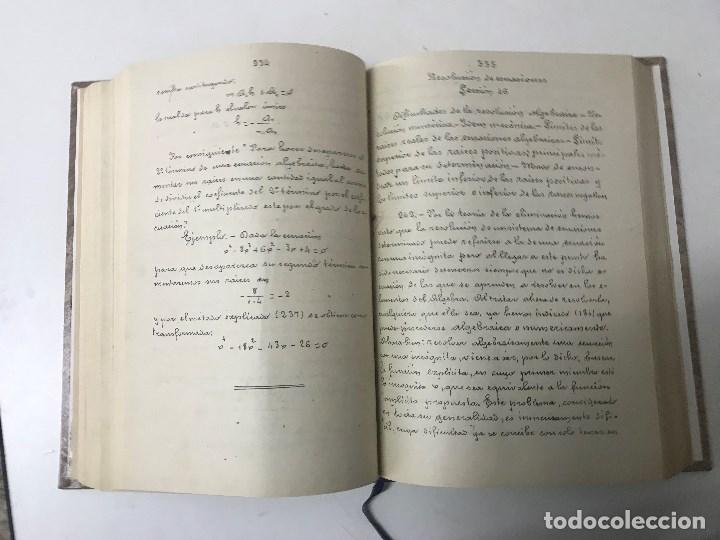 334
m A₀ h + A₁ = 0
h = - A₁
Por consiguiente "Para hacer desaparecer el
2º término de una ecuación algebráica, basta au-
mentar sus raices en una cantidad igual al cociente
de dividir el coeficiente del 2º término por el coefi-
ciente del 1º multiplicado este por el grado de la e-
cuación."
Ejemplo.- Dada la ecuación
para que desaparezca su segundo término au-
mentaremos sus raices en
- 8
1·4 = -2
y por el metodo explicado (237) se obtiene como
transformada:
x⁴ - 18x² - 43x - 26 = 0
335
Resolución de ecuaciones
Lección 26
Dificultades de la resolución algebraica - Re-
solución numérica - Idem mecánica - Límites de las
raices reales de las ecuaciones algebraicas - Límite
superior de las raices positivas; principales mé-
todos para su determinación - Modo de encon-
trar un límite inferior de las raices positivas y
los límites superior e inferior de las raices negativas
262.- Por la teoría de la eliminación hemos
visto que la resolución de un sistema de ecuaciones
determinado puede referirse a la de una ecuación
con una incógnita pero al llegar a este punto ha
sido necesario detenernos siempre que no es dicha e-
cuación de las que se aprenden a resolver en los e-
lementos del Algebra. Al tratar ahora de resolverla,
cualquiera que ella sea, ya hemos indicado (181) que
puede procederse algebraica o numericamente.
Ahora bien: resolver algebraicamente una ecuación
con una incógnita, viene a ser, por lo dicho, buscar
la función explicita, en cuyo primer miembro esté
la incógnita x, que sea equivalente a la función
implicita propuesta. Este problema, considerado
en toda su generalidad, es inmensamente difi-
cil, cuya dificultad ya se concibe con solo tener en
todocoleccion